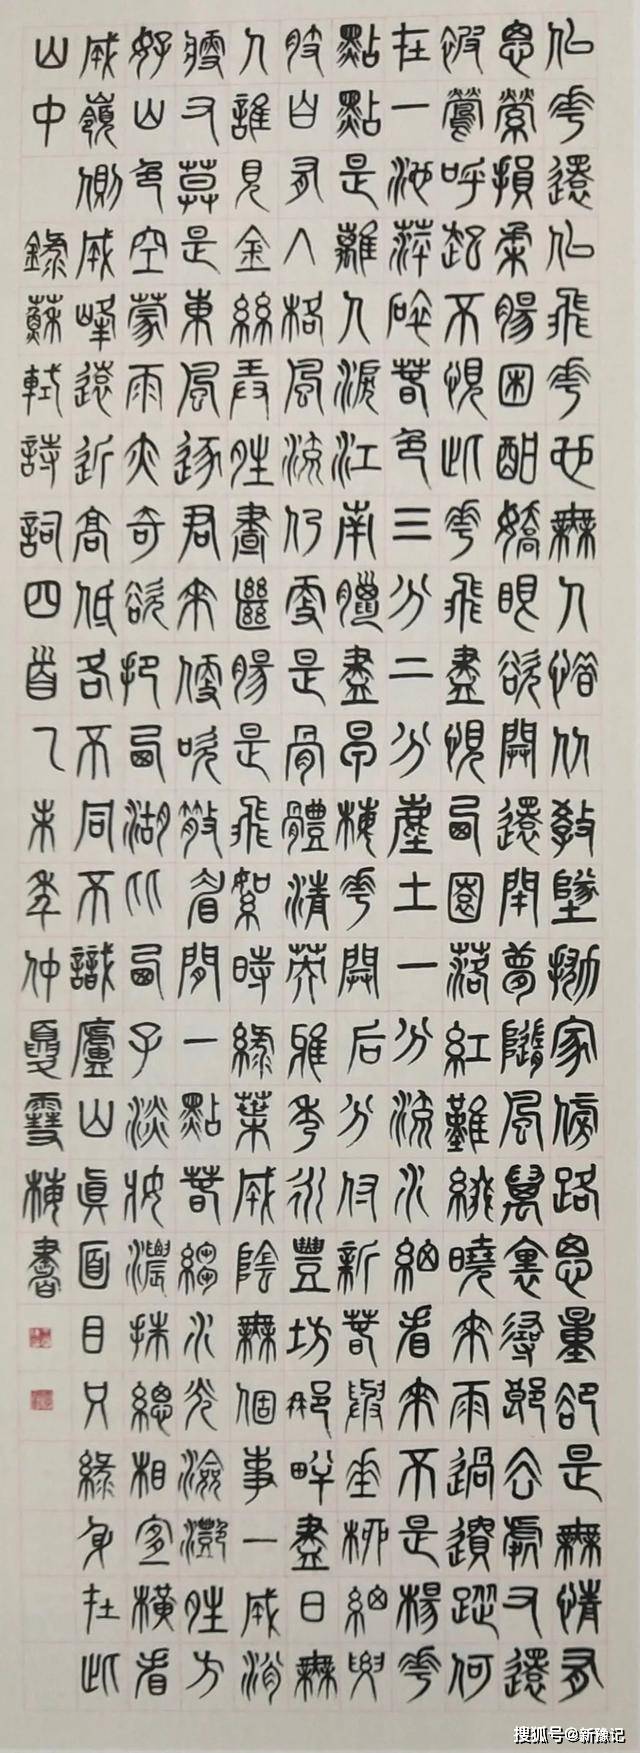 似花還似飛花也無人惜从教墜拋家傍路思量卻是無情有
思縈損柔腸困酣嬌眼欲開還閉夢隨風萬里尋郎去處又還
被鶯呼起不恨此花飛盡恨西園落紅難綴曉來雨過遺蹤何
在一池萍碎春色三分二分塵土一分流水細看來不是楊花
點點是離人淚江南臘盡早梅花開后分付新春與垂柳細腰
肢自有入格風流仍更是骨體清英雅秀永豐坊那畔盡日無
人誰見金絲弄晴晝斷腸是飛絮時綠葉成陰無個事一成消
瘦又莫是東風逐君來便吹散眉間一點春皺水光瀲灩晴方
好山色空蒙雨亦奇欲把西湖比西子淡妝濃抹總相宜橫看
成嶺側成峰遠近高低各不同不識廬山真面目只緣身在此
山中 錄蘇軾詩詞四首乙未年仲夏雪梅書
搜狐号@新豫记